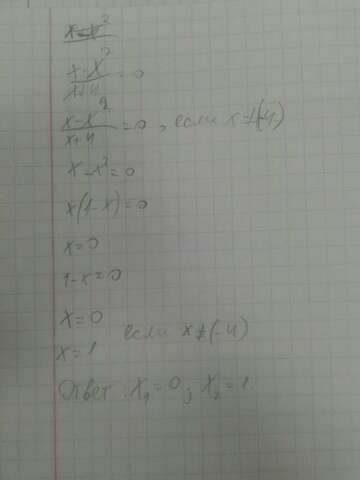 x-x²
x-x²/x+4=0
x-x²/x+4=0, если x≠(-4)
x-x²=0
x(1-x)=0
x=0
1-x=0
x=0
x=1 если x≠(-4)
Ответ: X₁=0; X₂=1